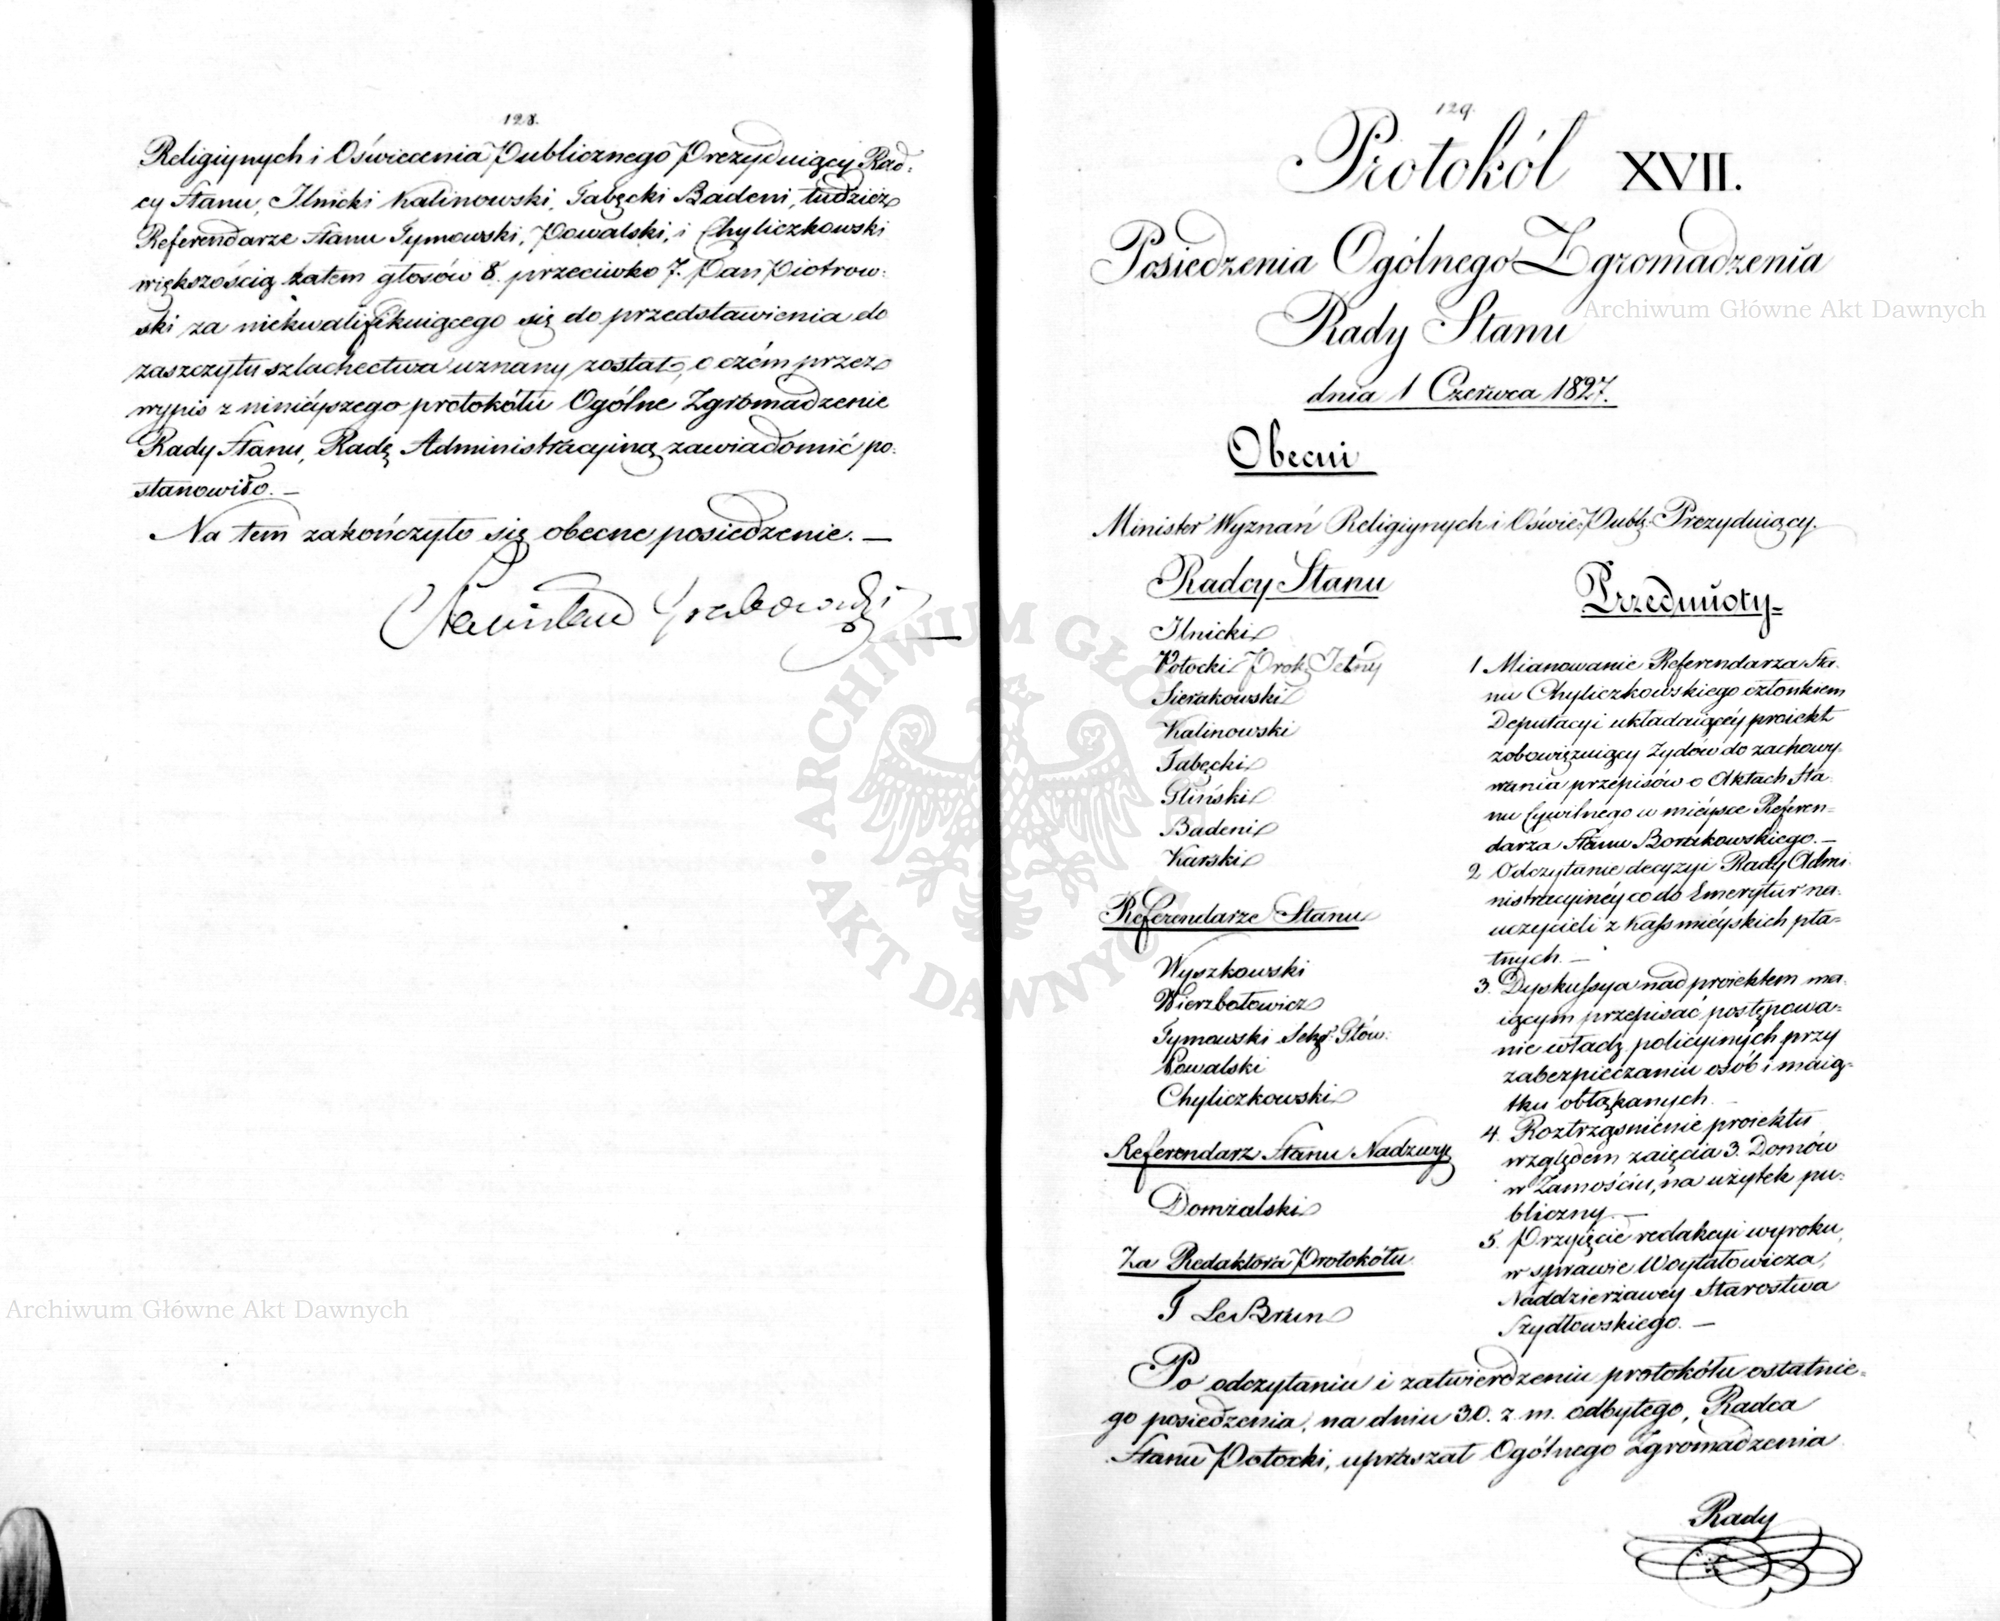 128.
Religiynych i Oświecenia Publicznego Prezyduiący Rad=
cy Stanu, Ilnicki Kalinowski, Tabęcki Badeni, tudzież
Referendarze Stanu Tymowski, Powalski, i Chyliczkowski
większością zatem głosów 8. przeciwko 7. Pan Piotrow=
ski za niekwalifikuiącego się do przedstawienia do
zaszczytu szlachectwa uznany został, o czém przez
wypis z ninieyszego protokółu Ogólne Zgromadzenie
Rady Stanu, Radę Administracyiną zawiadomić po=
stanowiło. —
Na tem zakończyło się obecne posiedzenie. —
Stanisław Grabowski
129.
Protokół XVII.
Posiedzenia Ogólnego Zgromadzenia
Rady Stanu
dnia 1 Czerwca 1827.
Obecni
Minister Wyznań Religiynych i Oświe: Publ: Prezyduiący.
Radcy Stanu
Ilnicki
Potocki Prok: Jełny
Sierakowski
Kalinowski
Tabęcki
Gliński
Badeni
Karski
Referendarze Stanu
Wyszkowski
Wierzbołowicz
Tymowski Sekr: Głów:
Powalski
Chyliczkowski
Referendarz Stanu Nadzwy:
Domżalski
Za Redaktora Protokółu
T LeBrun
Przedmioty=
1 Mianowanie Referendarza Sta=
nu Chyliczkowskiego członkiem
Deputacyi układaiącéy proiekt
zobowięzuiący Żydów do zachowy=
wania przepisów o Aktach Sta=
nu Cywilnego w mieysce Referen=
darza Stanu Borakowskiego. —
2 Odczytanie decyzyi Rady Admi=
nistracyinéy co do Emerytur na=
uczycieli z Kass mieyskich pła=
tnych. —
3. Dyskussya nad proiektem ma=
iącym przepisać postępowa=
nie władz policyinych przy
zabezpieczaniu osób i maią=
tku obłąkanych. —
4. Roztrząsnienie proiektu
względem zaięcia 3. Domów
w Zamościu, na użytek pu=
bliczny. —
5. Przyięcie redakcyi wyroku,
w sprawie Woytatowicza,
Naddzierżawcy Starostwa
Szydłowskiego. —
Po odczytaniu i zatwierdzeniu protokółu ostatnie=
go posiedzenia, na dniu 30. z. m. odbytego, Radca
Stanu Potocki, upraszał Ogólnego Zgromadzenia
Rady
Archiwum Główne Akt Dawnych
Archiwum Główne Akt Dawnych
ARCHIWUM GŁÓWNE
AKT DAWNYCH